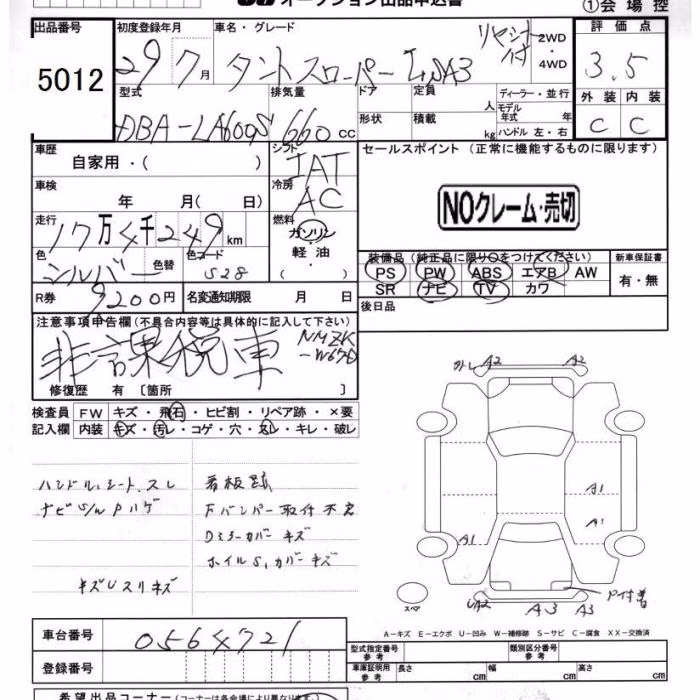 オークション出品申込書
①会場控
出品番号
5012
初度登録年月
29 7月
車名・グレード
タントスローパー L SA3
リヤシート付
2WD・4WD
評価点
3.5
外装 内装
C C
型式
DBA-LA600S
排気量
660 cc
ドア
形状
定員 人
積載 kg
ディーラー・並行
モデル年式 年
ハンドル 左・右
車歴
自家用・( )
シフト
IAT
セールスポイント (正常に機能するものに限ります)
NOクレーム・売切
車検
年 月( 日)
冷房
AC
走行
17万4千249km
燃料
ガソリン・軽油・( )
色
シルバー
色替
色コード
S28
R券
9200円
名変通知期限 月 日
装備品 (純正品に限り○をつけてください)
PS PW ABS エアB AW
SR ナビ TV カワ
新車保証書
有・無
後日品
注意事項申告欄(不具合内容等は具体的に記入して下さい)
非課税車
NMZK-W67D
修復歴 有 〔箇所 〕
検査員記入欄
FW キズ・飛石・ヒビ割・リペア跡・×要
内装 キズ・汚レ・コゲ・穴・スレ・キレ・破レ
ハンドル、シート、スレ
ナビS/W Pハゲ
キズUスリキズ
看板跡
Fバンパー取付不良
Dミラーカバーキズ
ホイルS,カバーキズ
外レ A2 A2
A1
A1
A1
スペア
UA2 A3 A3
P付着
A-キズ E-エクボ U-凹み W-補修跡 S-サビ C-腐食 XX-交換済
車台番号
0564721
登録番号
型式指定番号 参考
類別区分番号 参考
車庫証明用 参考
長さ cm 幅 cm 高さ cm
希望出品コーナー